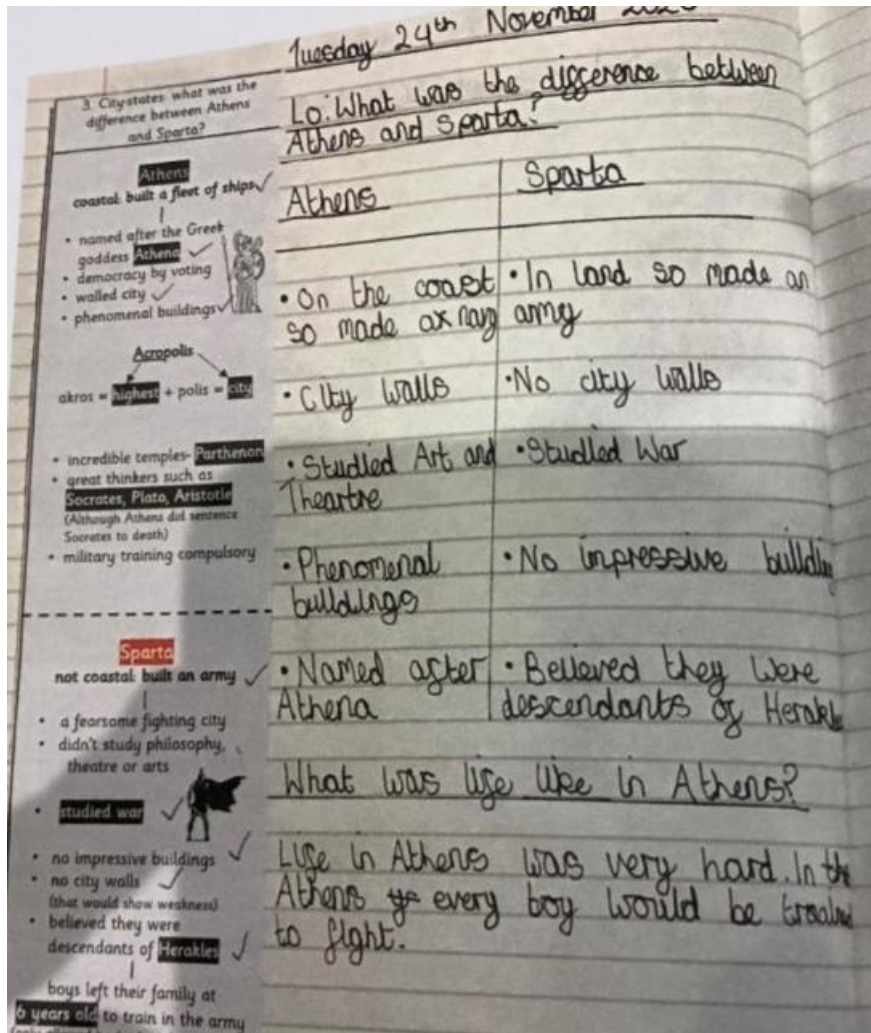 3. City-states: what was the
difference between Athens
and Sparta?
Athens
coastal: built a fleet of ships
• named after the Greek
goddess Athena
• democracy by voting
• walled city
• phenomenal buildings
Acropolis
akros = highest + polis = city
• incredible temples- Parthenon
• great thinkers such as
Socrates, Plato, Aristotle
(Although Athens did sentence
Socrates to death)
• military training compulsory
Sparta
not coastal: built an army
• a fearsome fighting city
• didn't study philosophy,
theatre or arts
• studied war
• no impressive buildings
• no city walls
(that would show weakness)
• believed they were
descendants of Herakles
boys left their family at
6 years old to train in the army
Tuesday 24th November
Lo: What was the difference between
Athens and Sparta?
Athens
• On the coast
so made a navy
• City walls
• Studied Art and
Theartre
• Phenomenal
buildings
• Named after
Athena
Sparta
• In land so made an
army
• No city walls
• Studied War
• No impressive
• Believed they were
descendants of
What was life like in Athens?
Life in Athens was very hard. In the
Athens every boy would be
to fight.